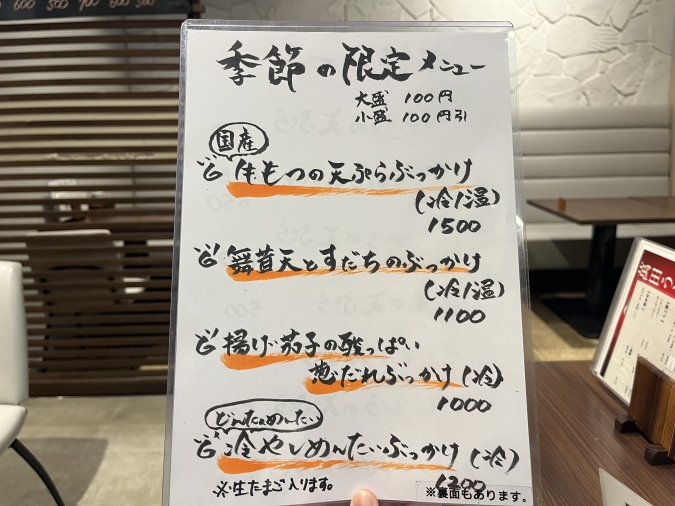 600 500 700 600 500
季節の限定メニュー
大盛 100円
小盛 100円引
国産
牛もつの天ぷらぶっかけ
(冷/温)
1500
舞茸天とすだちのぶっかけ
(冷/温)
1100
揚げ茄子の酸っぱい
葱だれぶっかけ(冷)
1000
冷やしめんたいぶっかけ(冷)
1200
※生たまご入ります。
※裏面もあります。